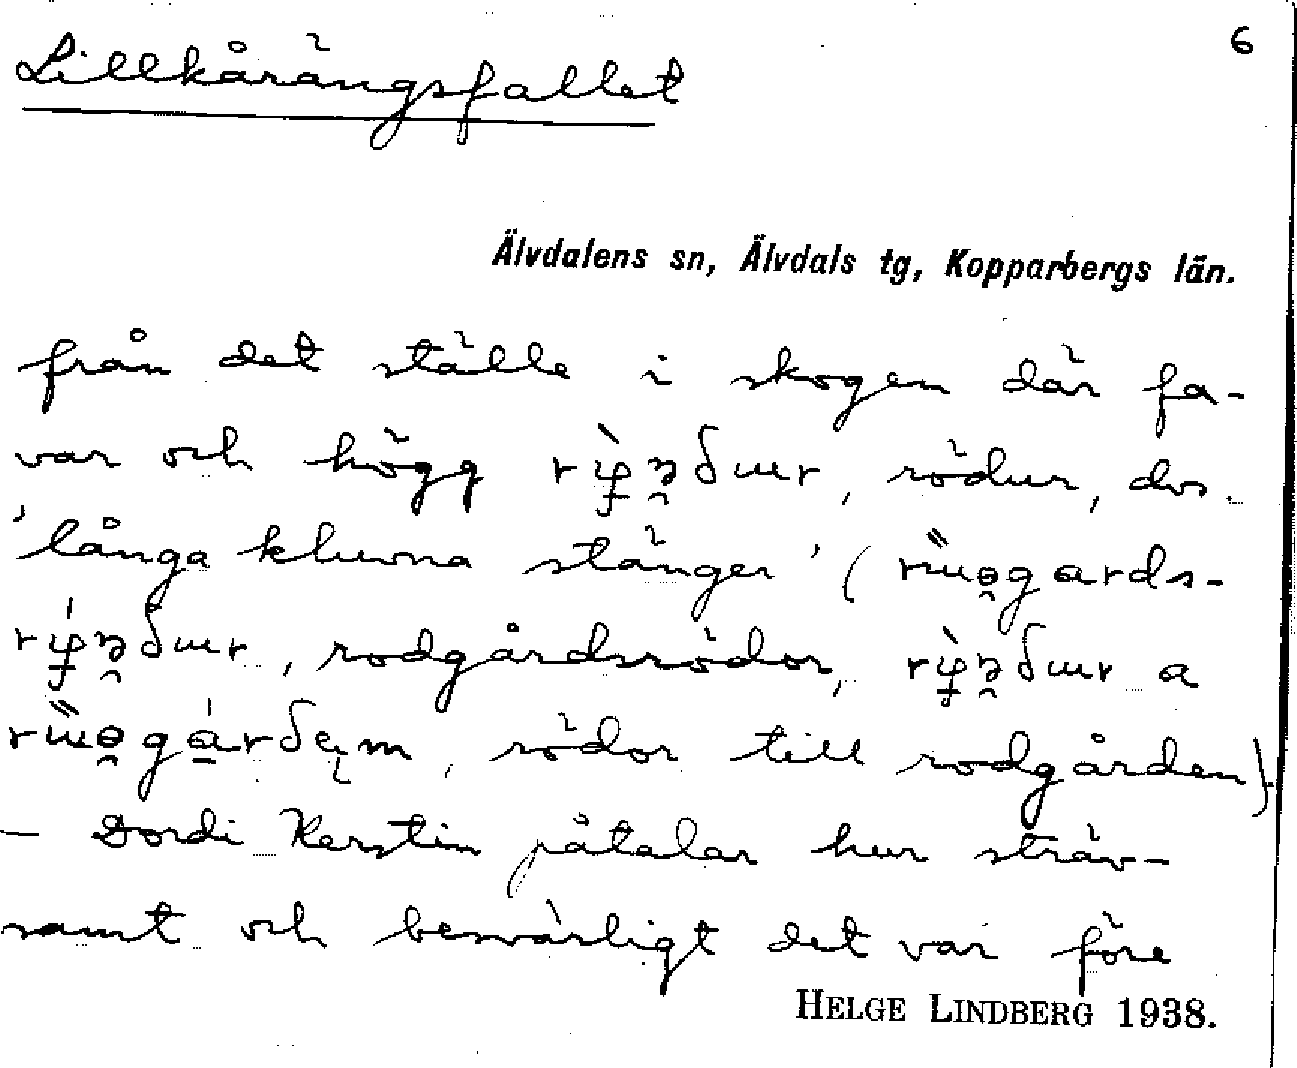 Lillkårängsfallet
6
Älvdalens sn, Älvdals tg, Kopparbergs län.
från det ställe i skogen där fa-
var och högg , rödur, dvs.
'långa kluvna stänger' (
, rodgårdsrödor, a
, rödor till rodgården).
— Dordi Kerstin påtalar hur sträv-
samt och besvärligt det var före
HELGE LINDBERG 1938.